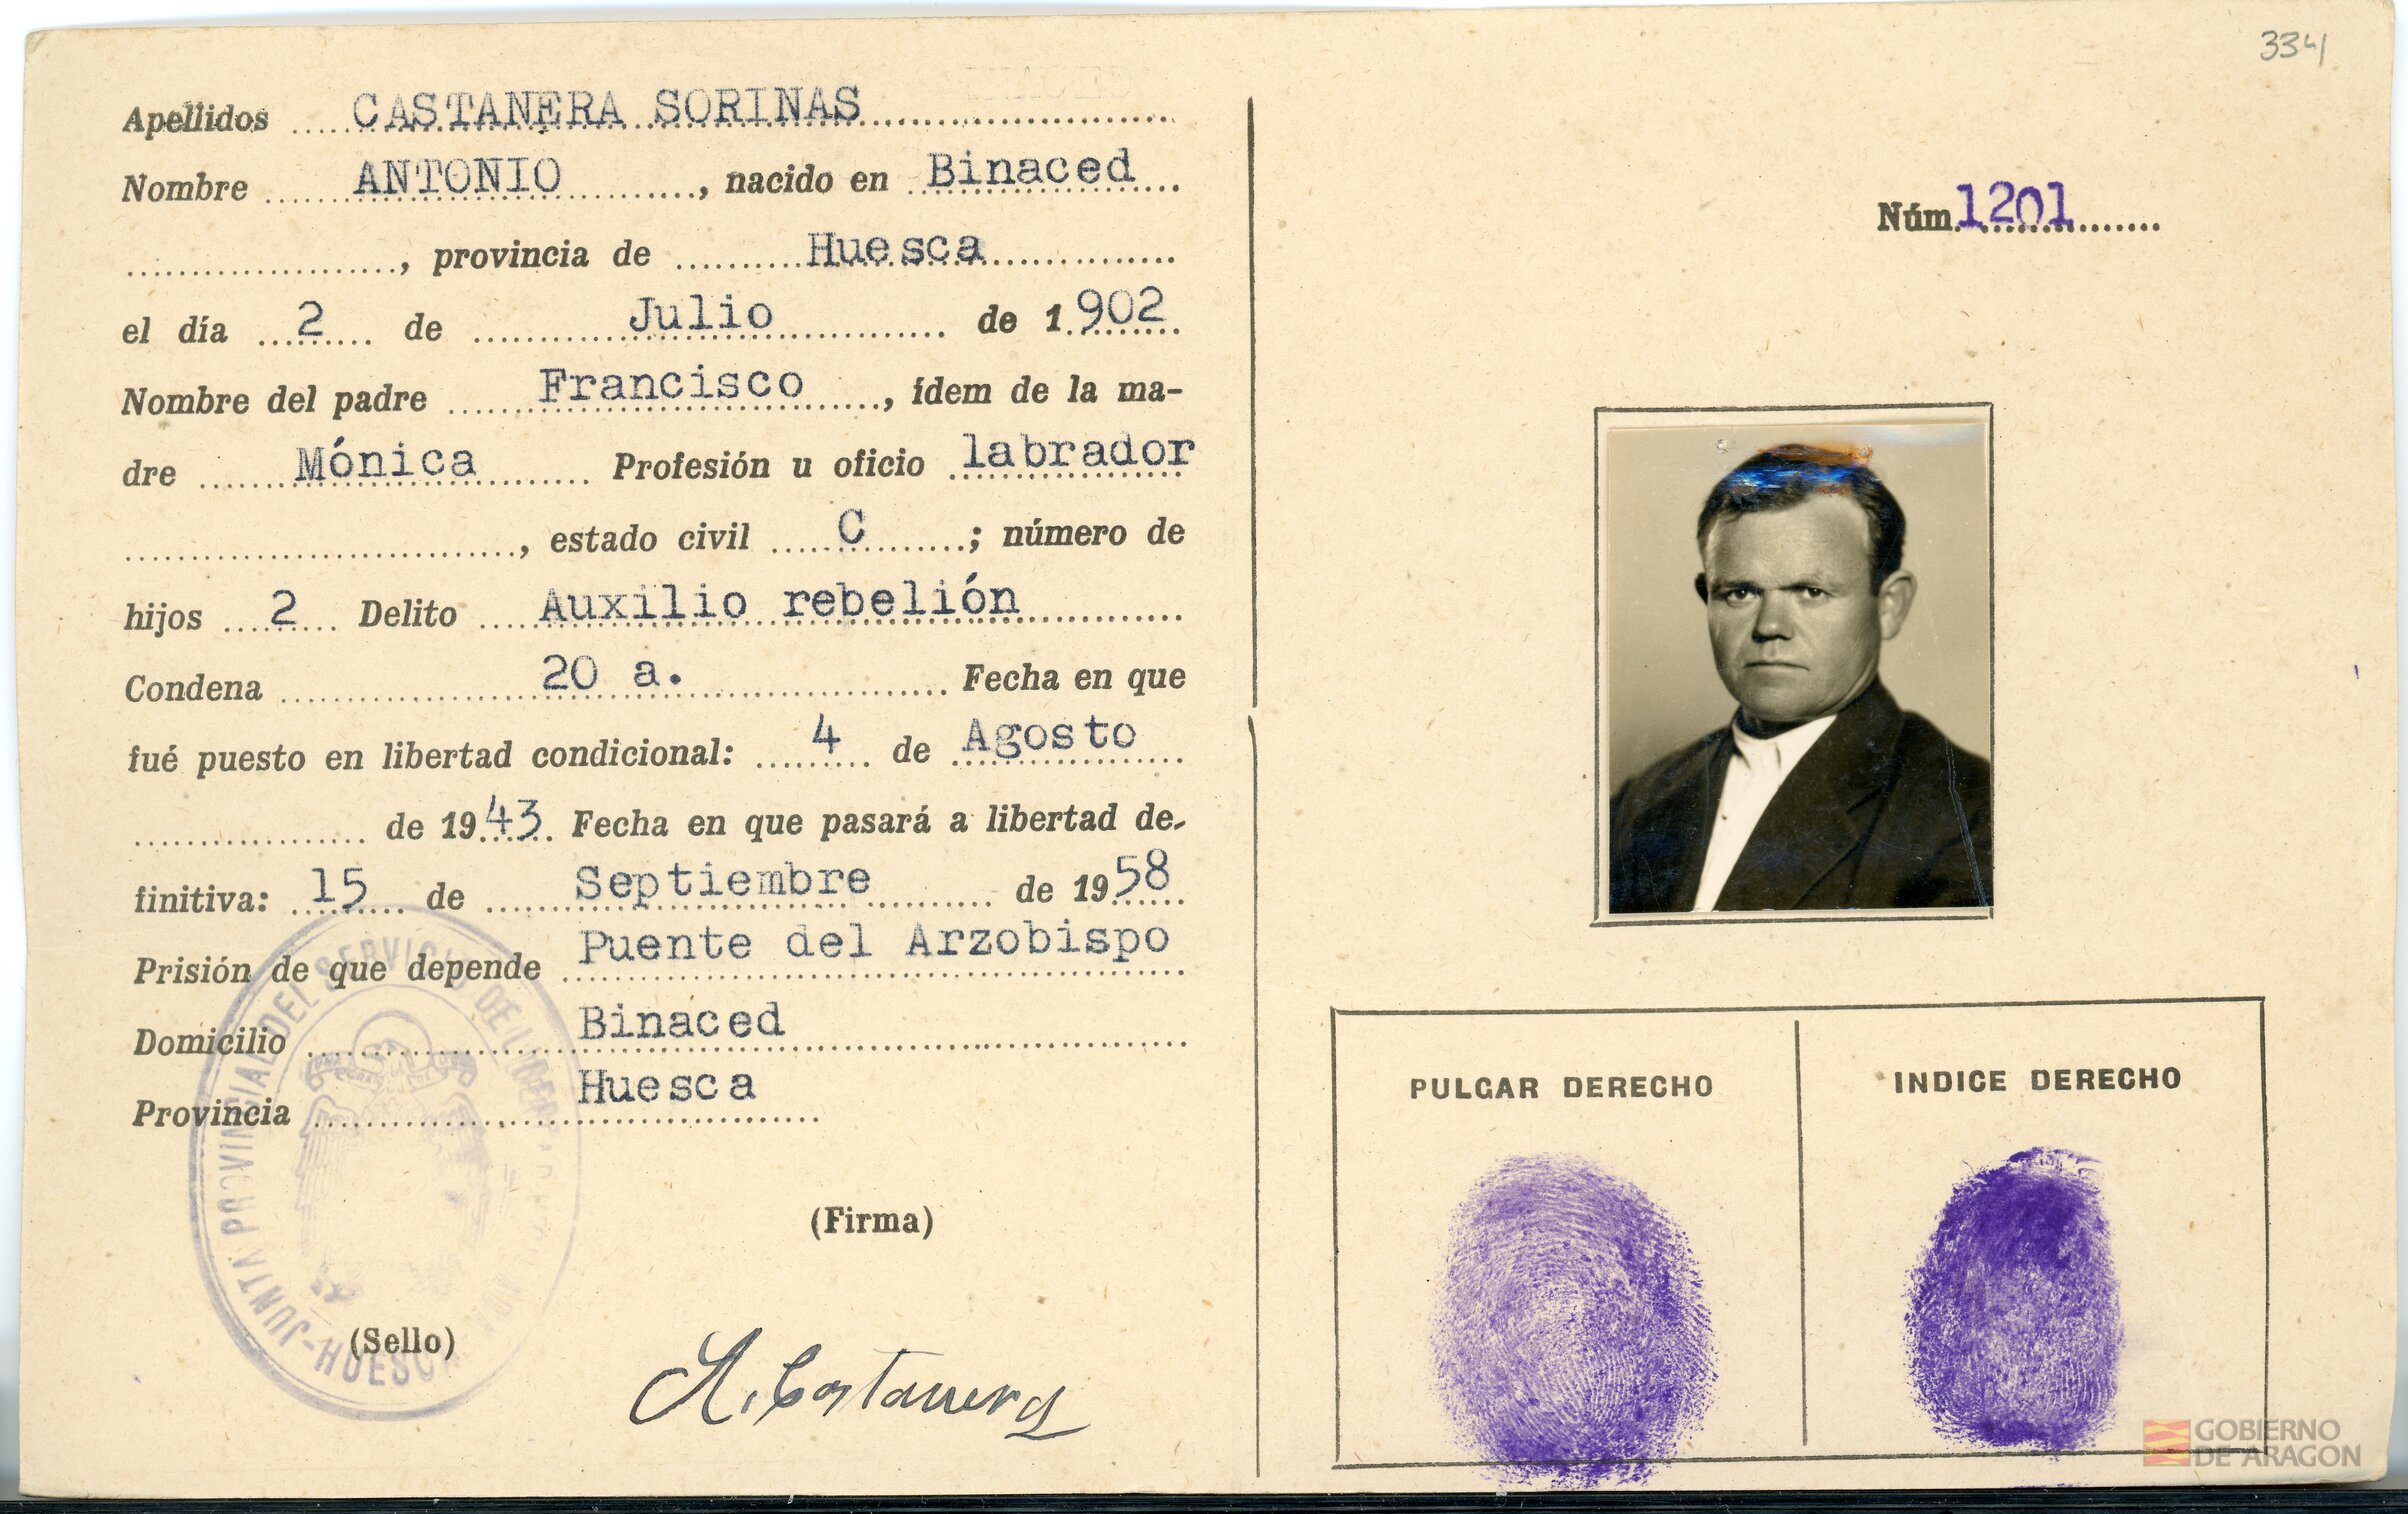 Apellidos CASTANERA SORINAS
Nombre ANTONIO, nacido en Binaced
, provincia de Huesca
el día 2 de Julio de 1902
Nombre del padre Francisco, ídem de la ma-
dre Mónica Profesión u oficio labrador
, estado civil C; número de
hijos 2 Delito Auxilio rebelión
Condena 20 a. Fecha en que
fué puesto en libertad condicional: 4 de Agosto
de 1943 Fecha en que pasará a libertad de-
finitiva: 15 de Septiembre de 1958
Prisión de que depende Puente del Arzobispo
Domicilio Binaced
Provincia Huesca
(Firma)
(Sello)
A. Castanera
JUNTA PROVINCIAL DEL SERVICIO DE LIBERTAD
-HUESCA
334
Núm. 1201
PULGAR DERECHO
INDICE DERECHO
GOBIERNO
DE ARAGON